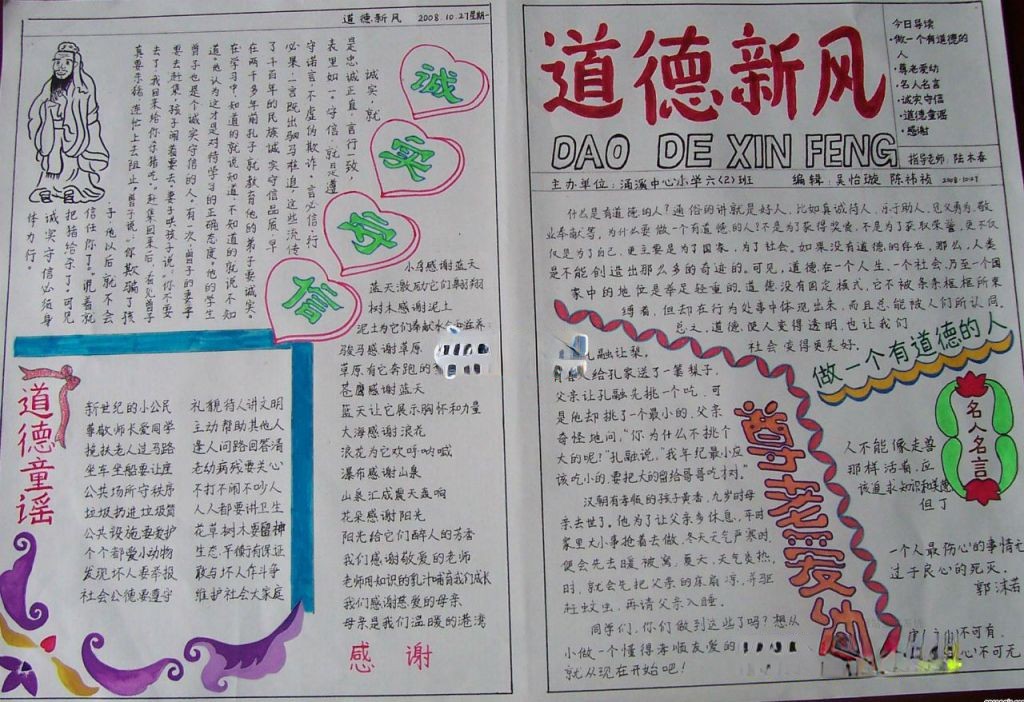 道德新风 2008.10.27星期一
诚
实
守
信
诚实,就
是忠诚正直,言行一致,
表里如一,守信,就是遵
守诺言,不虚伪欺诈,言必信,行
必果,一言既出驷马难追,这些流传
了千百年的民族诚实守信品质,早
在两千多年前孔子就教育他的弟子要诚实。
在学习中,知道的就说知道,不知道的就说不知
道。他认为这才是对待学习的正确态度。他的学生
曾子也是个诚实守信的人。有一次,曾子的妻子
要去赶集,孩子闹着要去。妻子哄孩子说,你不要
去了,我回来给你杀猪吃。赶集回来后,看见曾子
真要杀猪,连忙上去阻止。曾子说,你欺骗了孩
子,他以后就不会
信任你了。说着就
把猪给杀了。可见
诚实守信必须身
体力行。
小鸟感谢蓝天
蓝天激励它们翱翔
树木感谢泥土
泥土为它们奉献水分和滋养
骏马感谢草原
草原有它奔跑的
苍鹰感谢蓝天
蓝天让它展示胸怀和力量
大海感谢浪花
浪花为它欢呼呐喊
瀑布感谢山泉
山泉汇成夏天轰响
花朵感谢阳光
阳光给它们醉人的芳香
我们感谢敬爱的老师
老师用知识的乳汁哺育我们成长
我们感谢慈爱的母亲
母亲是我们温暖的港湾
感谢
道德童谣
新世纪的小公民 礼貌待人讲文明
尊敬师长爱同学 主动帮助其他人
搀扶老人过马路 逢人问路回答清
坐车坐船要让座 老幼病残要关心
公共场所守秩序 不打不闹不吵人
垃圾扔进垃圾筒 人人都要讲卫生
公共设施要爱护 花草树木要留神
个个都爱小动物 生态平衡有保证
发现坏人要举报 敢与坏人作斗争
社会公德要遵守 维护社会大家庭
道德新风
DAO DE XIN FENG
今日导读
·做一个有道德的
人
·尊老爱幼
·名人名言
·诚实守信
·道德童谣
·感谢
指导老师:陆木春
主办单位:涌溪中心小学六(2)班 编辑:吴怡璇 陈祎祯 2008.10.27
什么是有道德的人?通俗的讲就是好人,比如真诚待人,乐于助人,见义勇为,敬
业奉献等,为什么要做一个有道德的人?不是为了获得奖赏,不是为了获取荣誉,更不仅
仅是为了自己,更主要是为了国家,为了社会。如果没有道德的存在,那么,人类
是不能创造出那么多的奇迹的。可见,道德,在一个人生、一个社会,乃至一个国
家中的地位是举足轻重的。道德没有固定模式,它不被条条框框所束
缚着,但却在行为处事中体现出来,而且总能被人们所认同。
总之,道德,使人变得透明,也让我们
社会变得更美好。
做一个有道德的人
孔融让梨。
人给孔家送了一篓梨子,
父亲让孔融先挑一个吃,可
是他却挑了一个最小的,父亲
奇怪地问,“你为什么不挑个
大的呢?”孔融说,“我年纪最小应
该吃小的,要把大的留给哥哥吃才对。”
汉朝有孝顺的孩子黄香,九岁时母
亲去世了。他为了让父亲多休息,平时
家里大小事抢着去做,冬天天气严寒时,
便会先去暖被窝,夏天,天气炎热,
时,就会先把父亲的床扇凉,并驱
赶蚊虫,再请父亲入睡。
同学们,你们做到这些了吗?想从
小做一个懂得孝顺友爱的
就从现在开始吧!
尊老爱幼
名人名言
人不能像走兽
那样活着,应
该追求知识和美德
但丁
一个人最伤心的事情
过于良心的死灭。
郭沫若
不可有,
心不可无